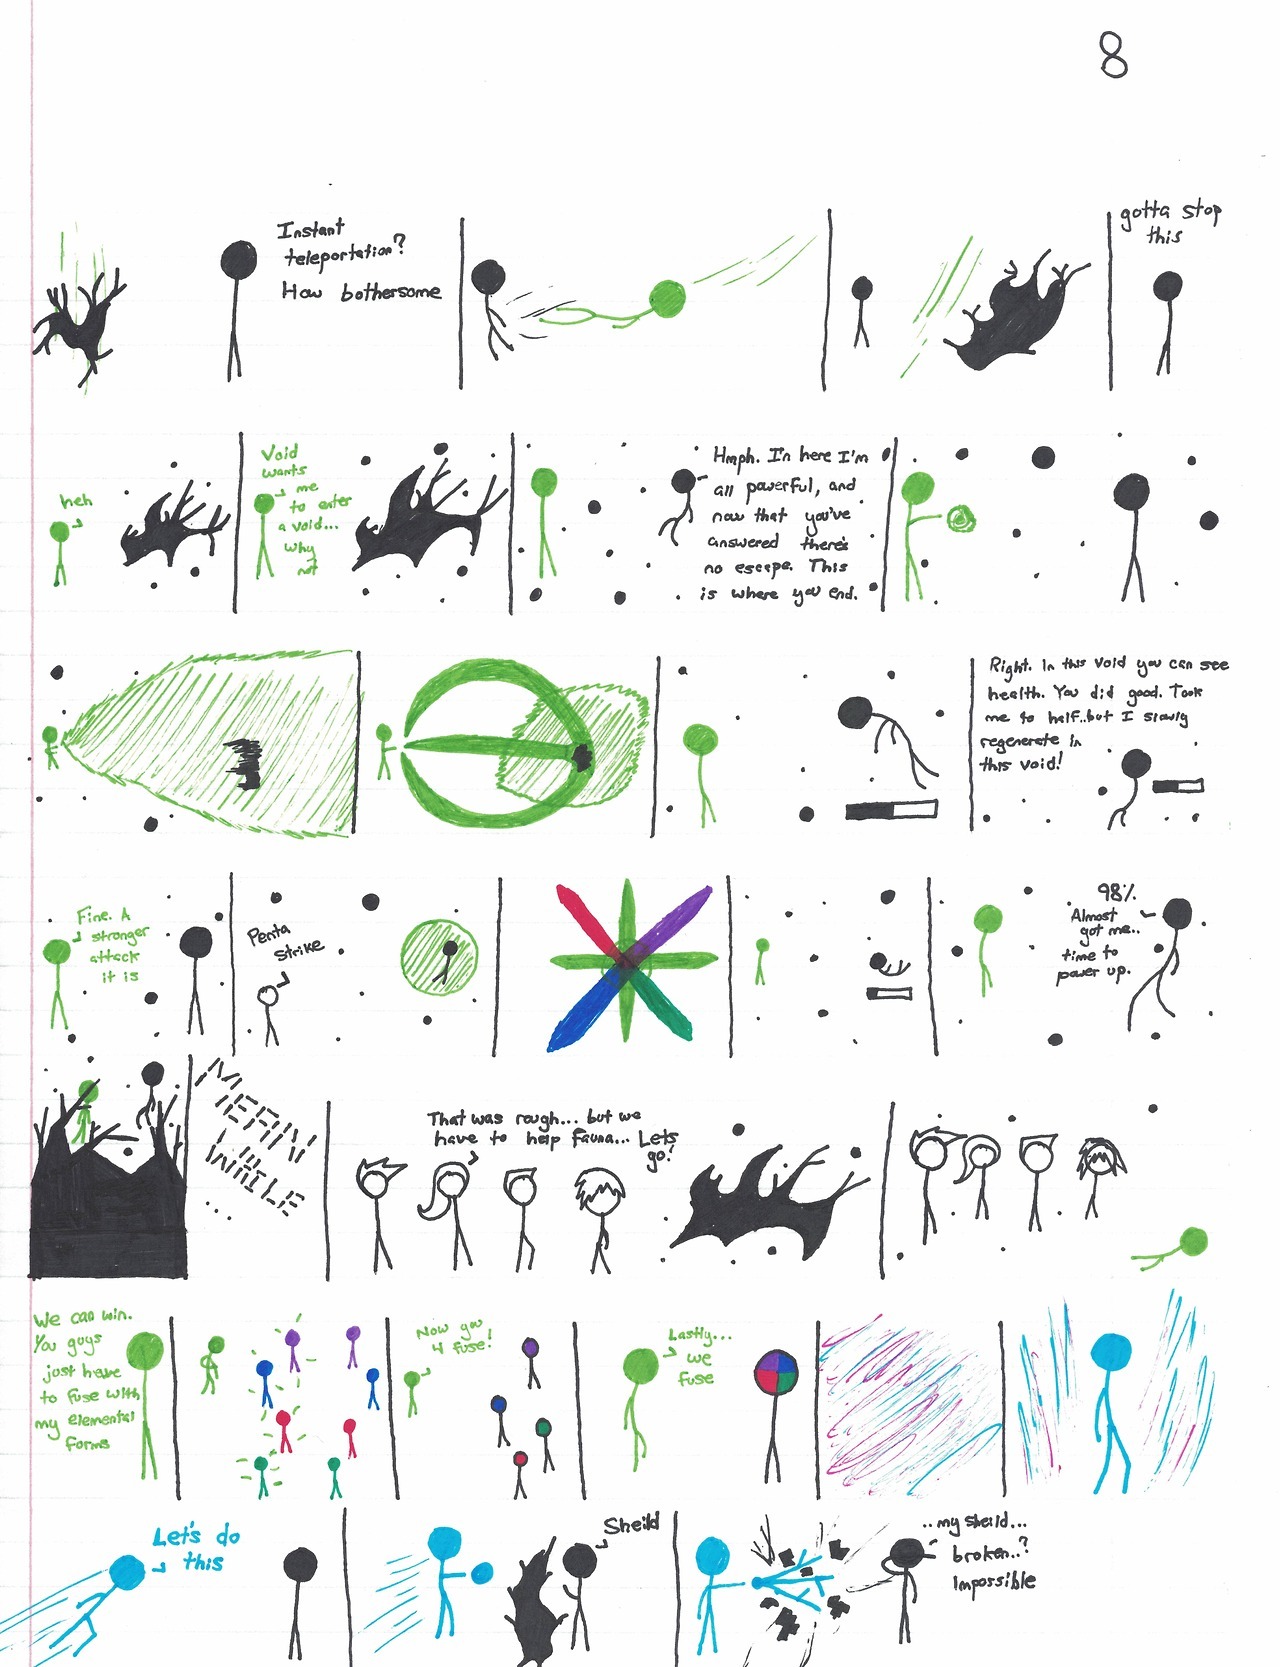 8
Instant
teleportation?
How bothersome
gotta stop
this
heh
Void
wants
me
to enter
a void...
why
not
Hmph. I'n here I'm
all powerful, and
now that you've
answered there's
no escape. This
is where you end.
Right. In this void you can see
health. You did good. Took
me to half..but I slowly
regenerate in
this void!
Fine. A
stronger
attack
it is
Penta
Strike
98%
Almost
got me..
time to
power up.
MEAN
WHILE
...
That was rough... but we
have to help Fauna... Lets
go!
We can win.
You guys
just have
to fuse with
my elemental
forms
Now you
4 fuse!
Lastly...
we
fuse
Let's do
this
Sheild
..my sheild...
broken..?
Impossible